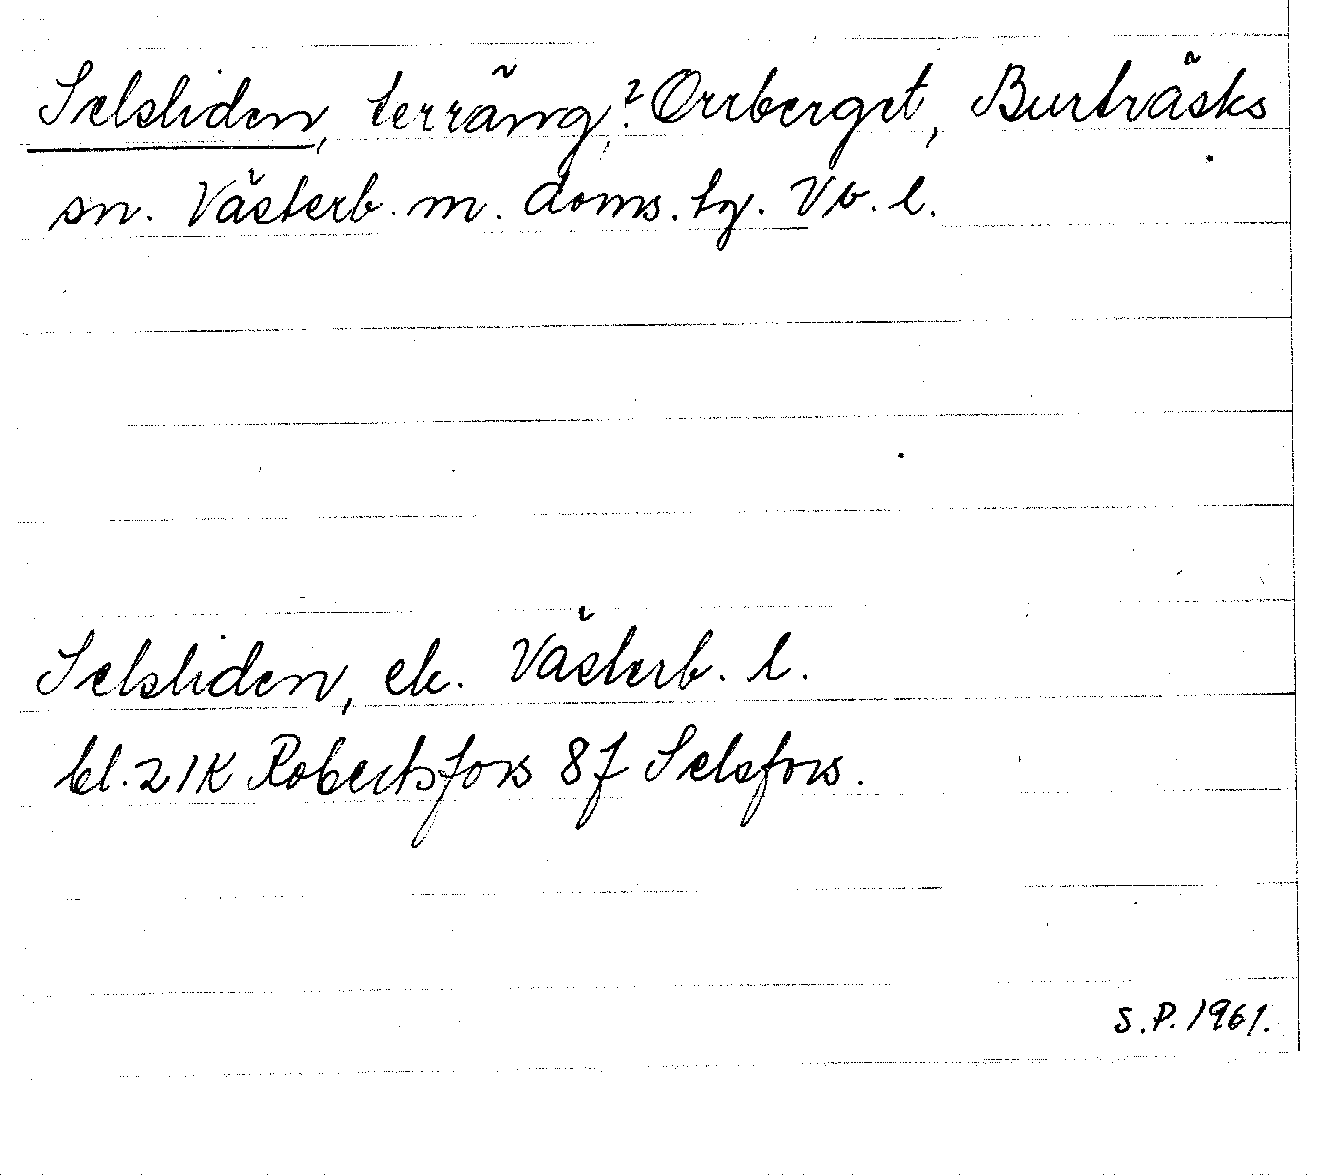 Selsliden, terräng? Orrberget, Burträsks
sn. Västerb. m. doms. tg. Vb. l.
Selsliden, ek. Västerb. l.
bl. 21K Robertsfors 8f Selsfors.
S.P. 1961.